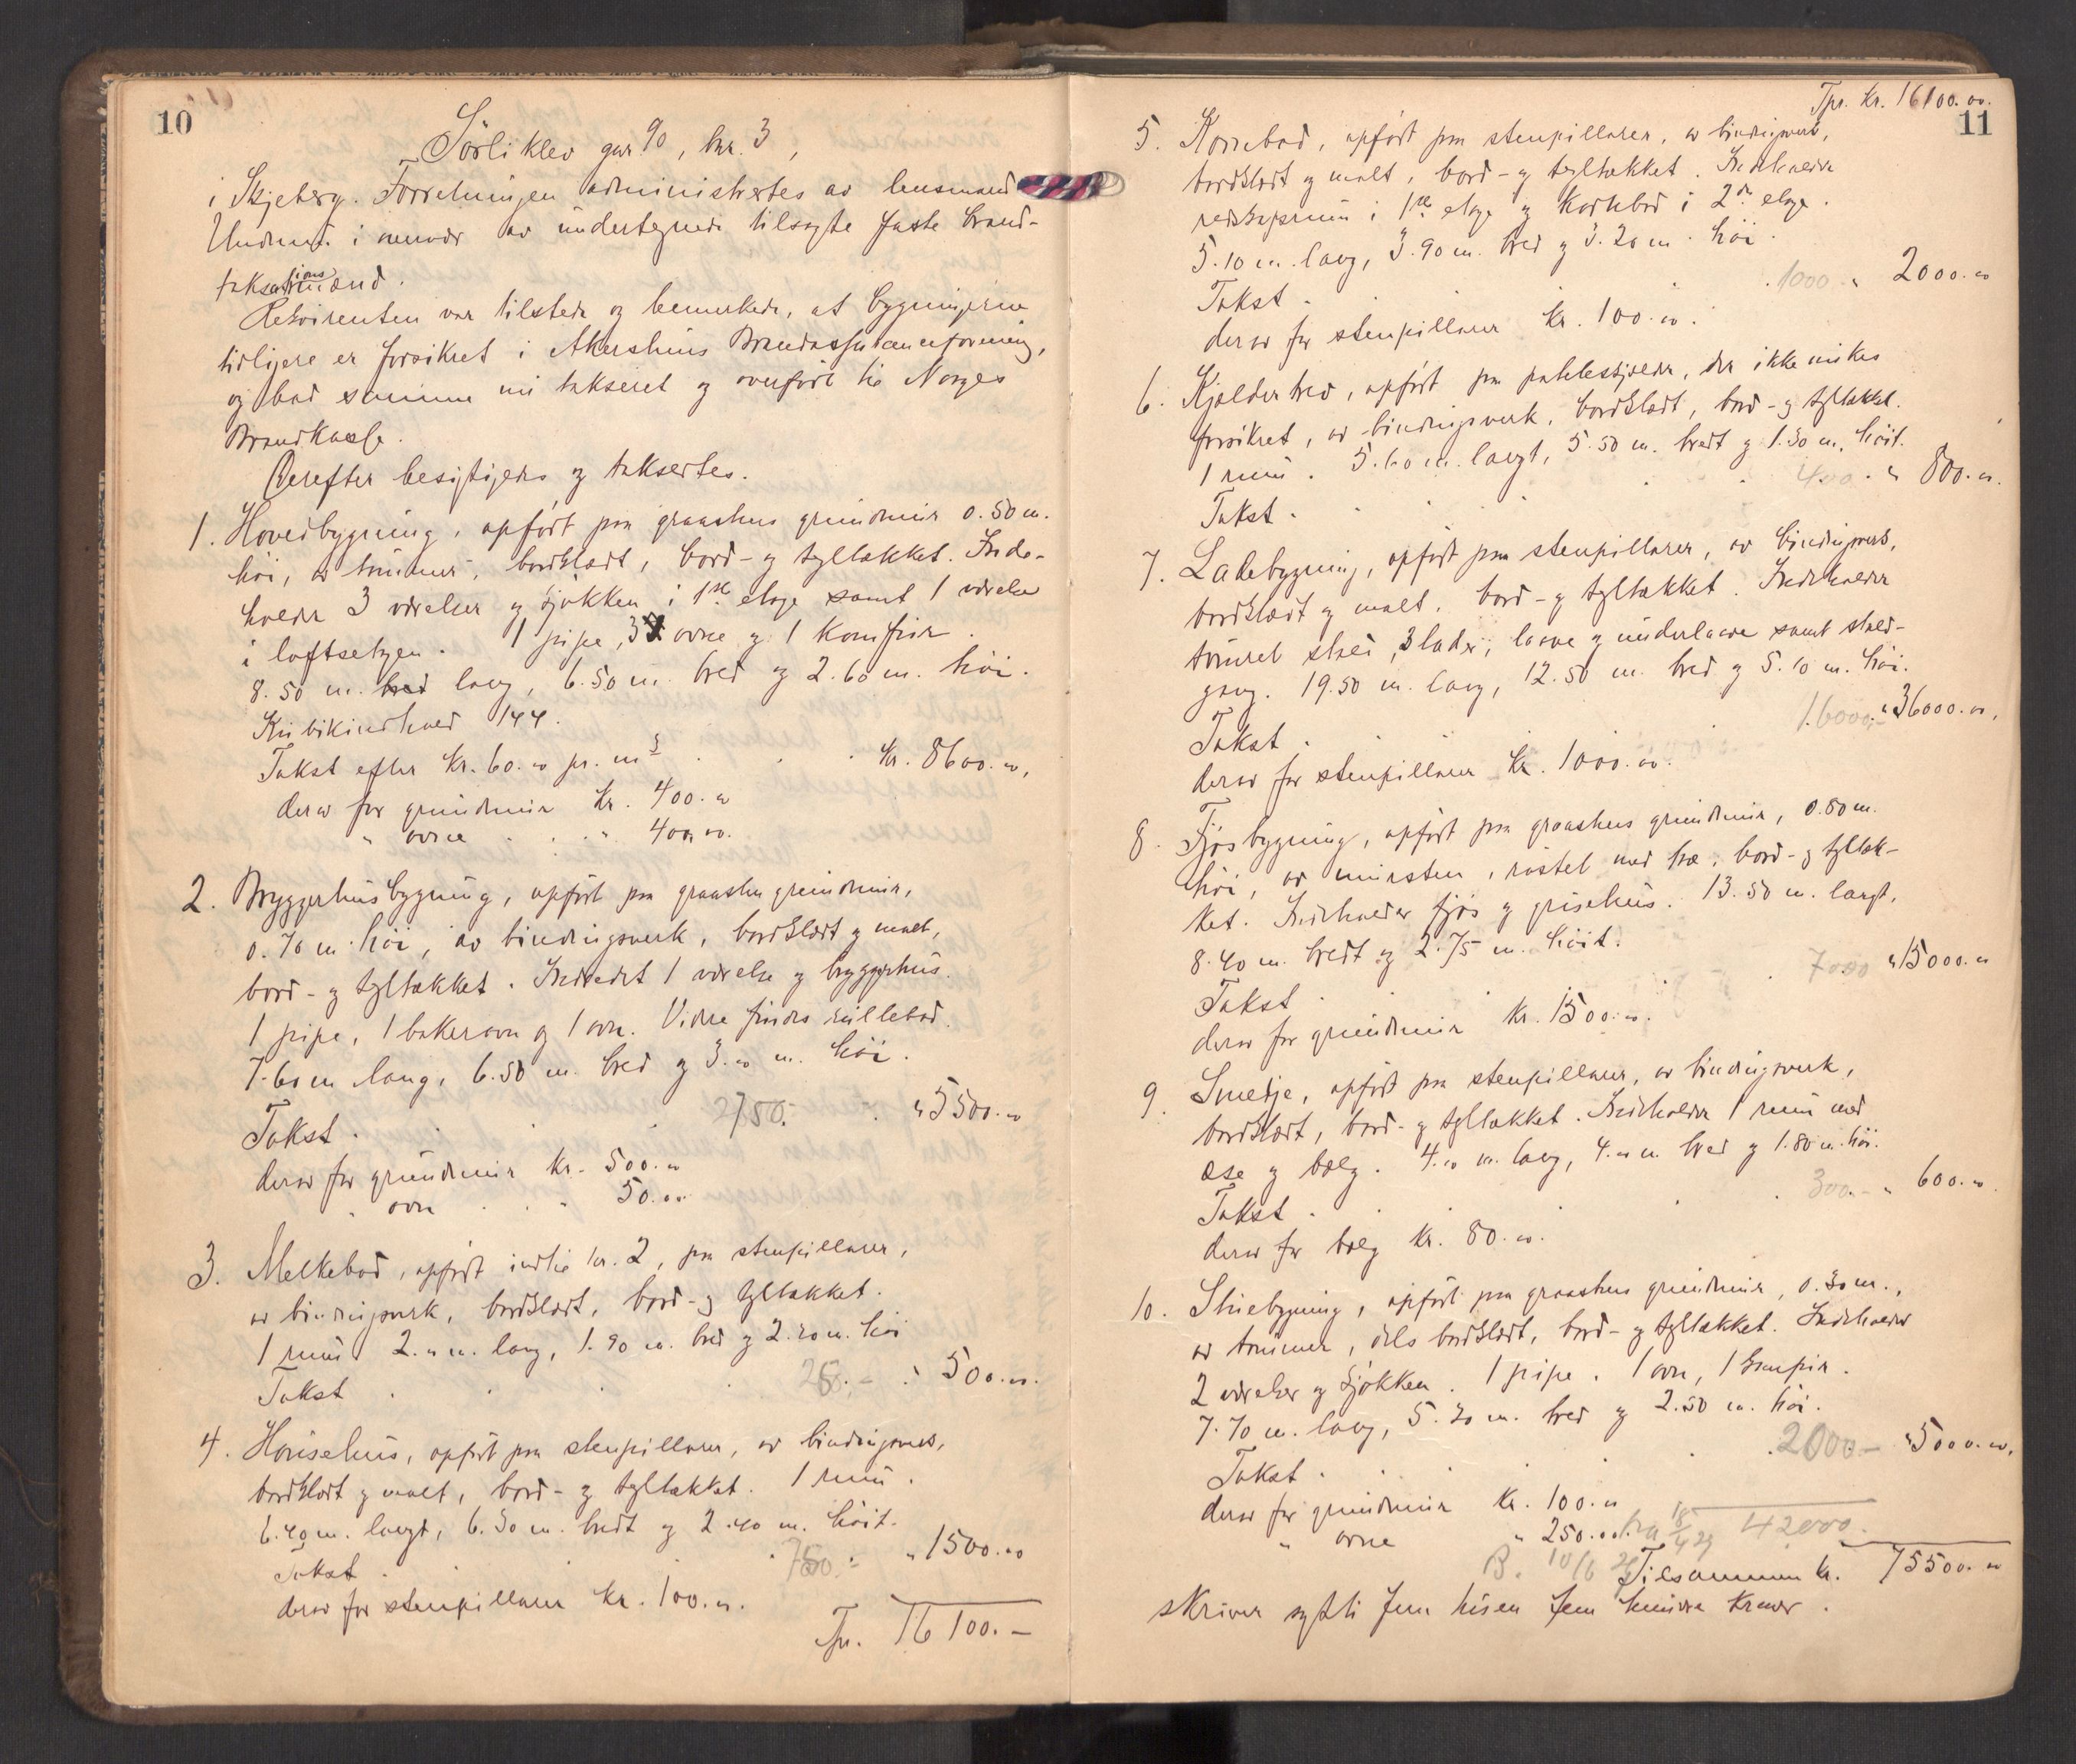 10
Sörliklev gnr. 90, bnr. 3,
i Skjeberg. Forretningen administrertes av lensmand
Undrum i nærvær av undertegnede tilsagte faste brand-
taksationsmænd.
Rekvirenten var tilstede og bemerkede, at bygningerne
tidligere er forsikret i Akershus Brandassuranceforening,
og bad samme nu takseret og overført til Norges
Brandkasse.
Derefter besigtigedes og taksertes.
1. Hovedbygning, opført paa graastens grundmur 0.50 m.
høi, av tømmer, bordklædt, bord- og tegltækket. Inde-
holder 3 værelser og kjøkken i 1ste etage samt 1 værelse
i loftsetagen. 1 pipe, 3 ovne og 1 komfur.
8.50 m. bred lang, 6.50 m. bred og 2.60 m. høi.
Kubikindhold 144.
Takst efter kr. 60.00 pr. m3 . . . kr. 8600.00,
derav for grundmur kr. 400.00
" ovne . . . " 400.00.
2. Bryggerhusbygning, opført paa graasten grundmur,
0.70 m. høi, av bindingsverk, bordklædt og malt,
bord- og tegltækket. Indredet 1 værelse og bryggerhus.
1 pipe, 1 bakerovn og 1 ovn. Videre findes rullebod.
7.60 m lang, 6.50 m. bred og 3.00 m. høi.
Takst . 2750.- . " 5500.00
derav for grundmur kr. 500.00
" ovn . . " 50.00
3. Melkebod, opført indtil nr. 2, paa stenpillarer,
av bindingsverk, bordklædt, bord- og tegltækket.
1 rum. 2.00 m. lang, 1.90 m. bred og 2.20 m. høi
Takst . . . . 250.- " 500.00.
4. Hønsehus, opført paa stenpillarer, av bindingsverk,
bordklædt og malt, bord- og tegltækket. 1 rum.
6.40 m. langt, 6.30 m. bredt og 2.40 m. høit.
Takst . . 750.- " 1500.00
derav for stenpillarer kr. 100.00.
Tpr. 16100.-
Tpr. kr. 16100.00.
11
5. Kornbod, opført paa stenpillarer, av bindingsverk,
bordklædt og malt, bord- og tegltækket. Indeholder
redskapsrum i 1ste etage og kornbod i 2den etage.
5.10 m. lang, 3.90 m. bred og 3.20 m. høi.
Takst . . . . 1000 " 2000.00
derav for stenpillarer kr. 100.00.
6. Kjelderhus, opført paa potetkjelder, der ikke ønskes
forsikret, av bindingsverk, bordklædt, bord- og tegltækket.
1 rum. 5.60 m. langt, 5.50 m. bredt og 1.30 m. høit.
Takst . . . . 400. " 800.00.
7. Ladebygning, opført paa stenpillarer, av bindingsverk,
bordklædt og malt, bord- og tegltækket. Indeholder
tømret stald, 3 lader, laave og underlaave samt stald-
gang. 19.50 m. lang, 12.50 m. bred og 5.10 m. høi.
Takst . . . 16000.- " 36000.00,
derav for stenpillarer kr. 1000.00.
8. Fjøsbygning, opført paa graastens grundmur, 0.80 m.
høi, av mursten, røstet med træ, bord- og tegltæk-
ket. Indeholder fjøs og grisehus. 13.50 m. langt,
8.40 m. bredt og 2.75 m. høit.
Takst . . . . 7000 " 15000.00
derav for grundmur kr. 1500.00.
9. Smedje, opført paa stenpillarer, av bindingsverk,
bordklædt, bord- og tegltækket. Indeholder 1 rum med
esse og bælg. 4.00 m. lang, 4.00 m. bred og 1.80 m. høi.
Takst . . . . 300.- " 600.00
derav for bælg kr. 80.00.
10. Stuebygning, opført paa graastens grundmur, 0.30 m.,
av tømmer, dels bordklædt, bord- og tegltækket. Indeholder
2 værelser og kjøkken. 1 pipe. 1 ovn, 1 komfur.
7.70 m. lang, 5.20 m. bred og 2.50 m. høi.
Takst . . . . 2000.- " 5000.00,
derav for grundmur kr. 100.00
" ovne " 250.00. fra 18/4 29 42000.
B. 10/6 29 Tilsammen kr. 75500.00
skriver sytti fem tusen fem hundre kroner.